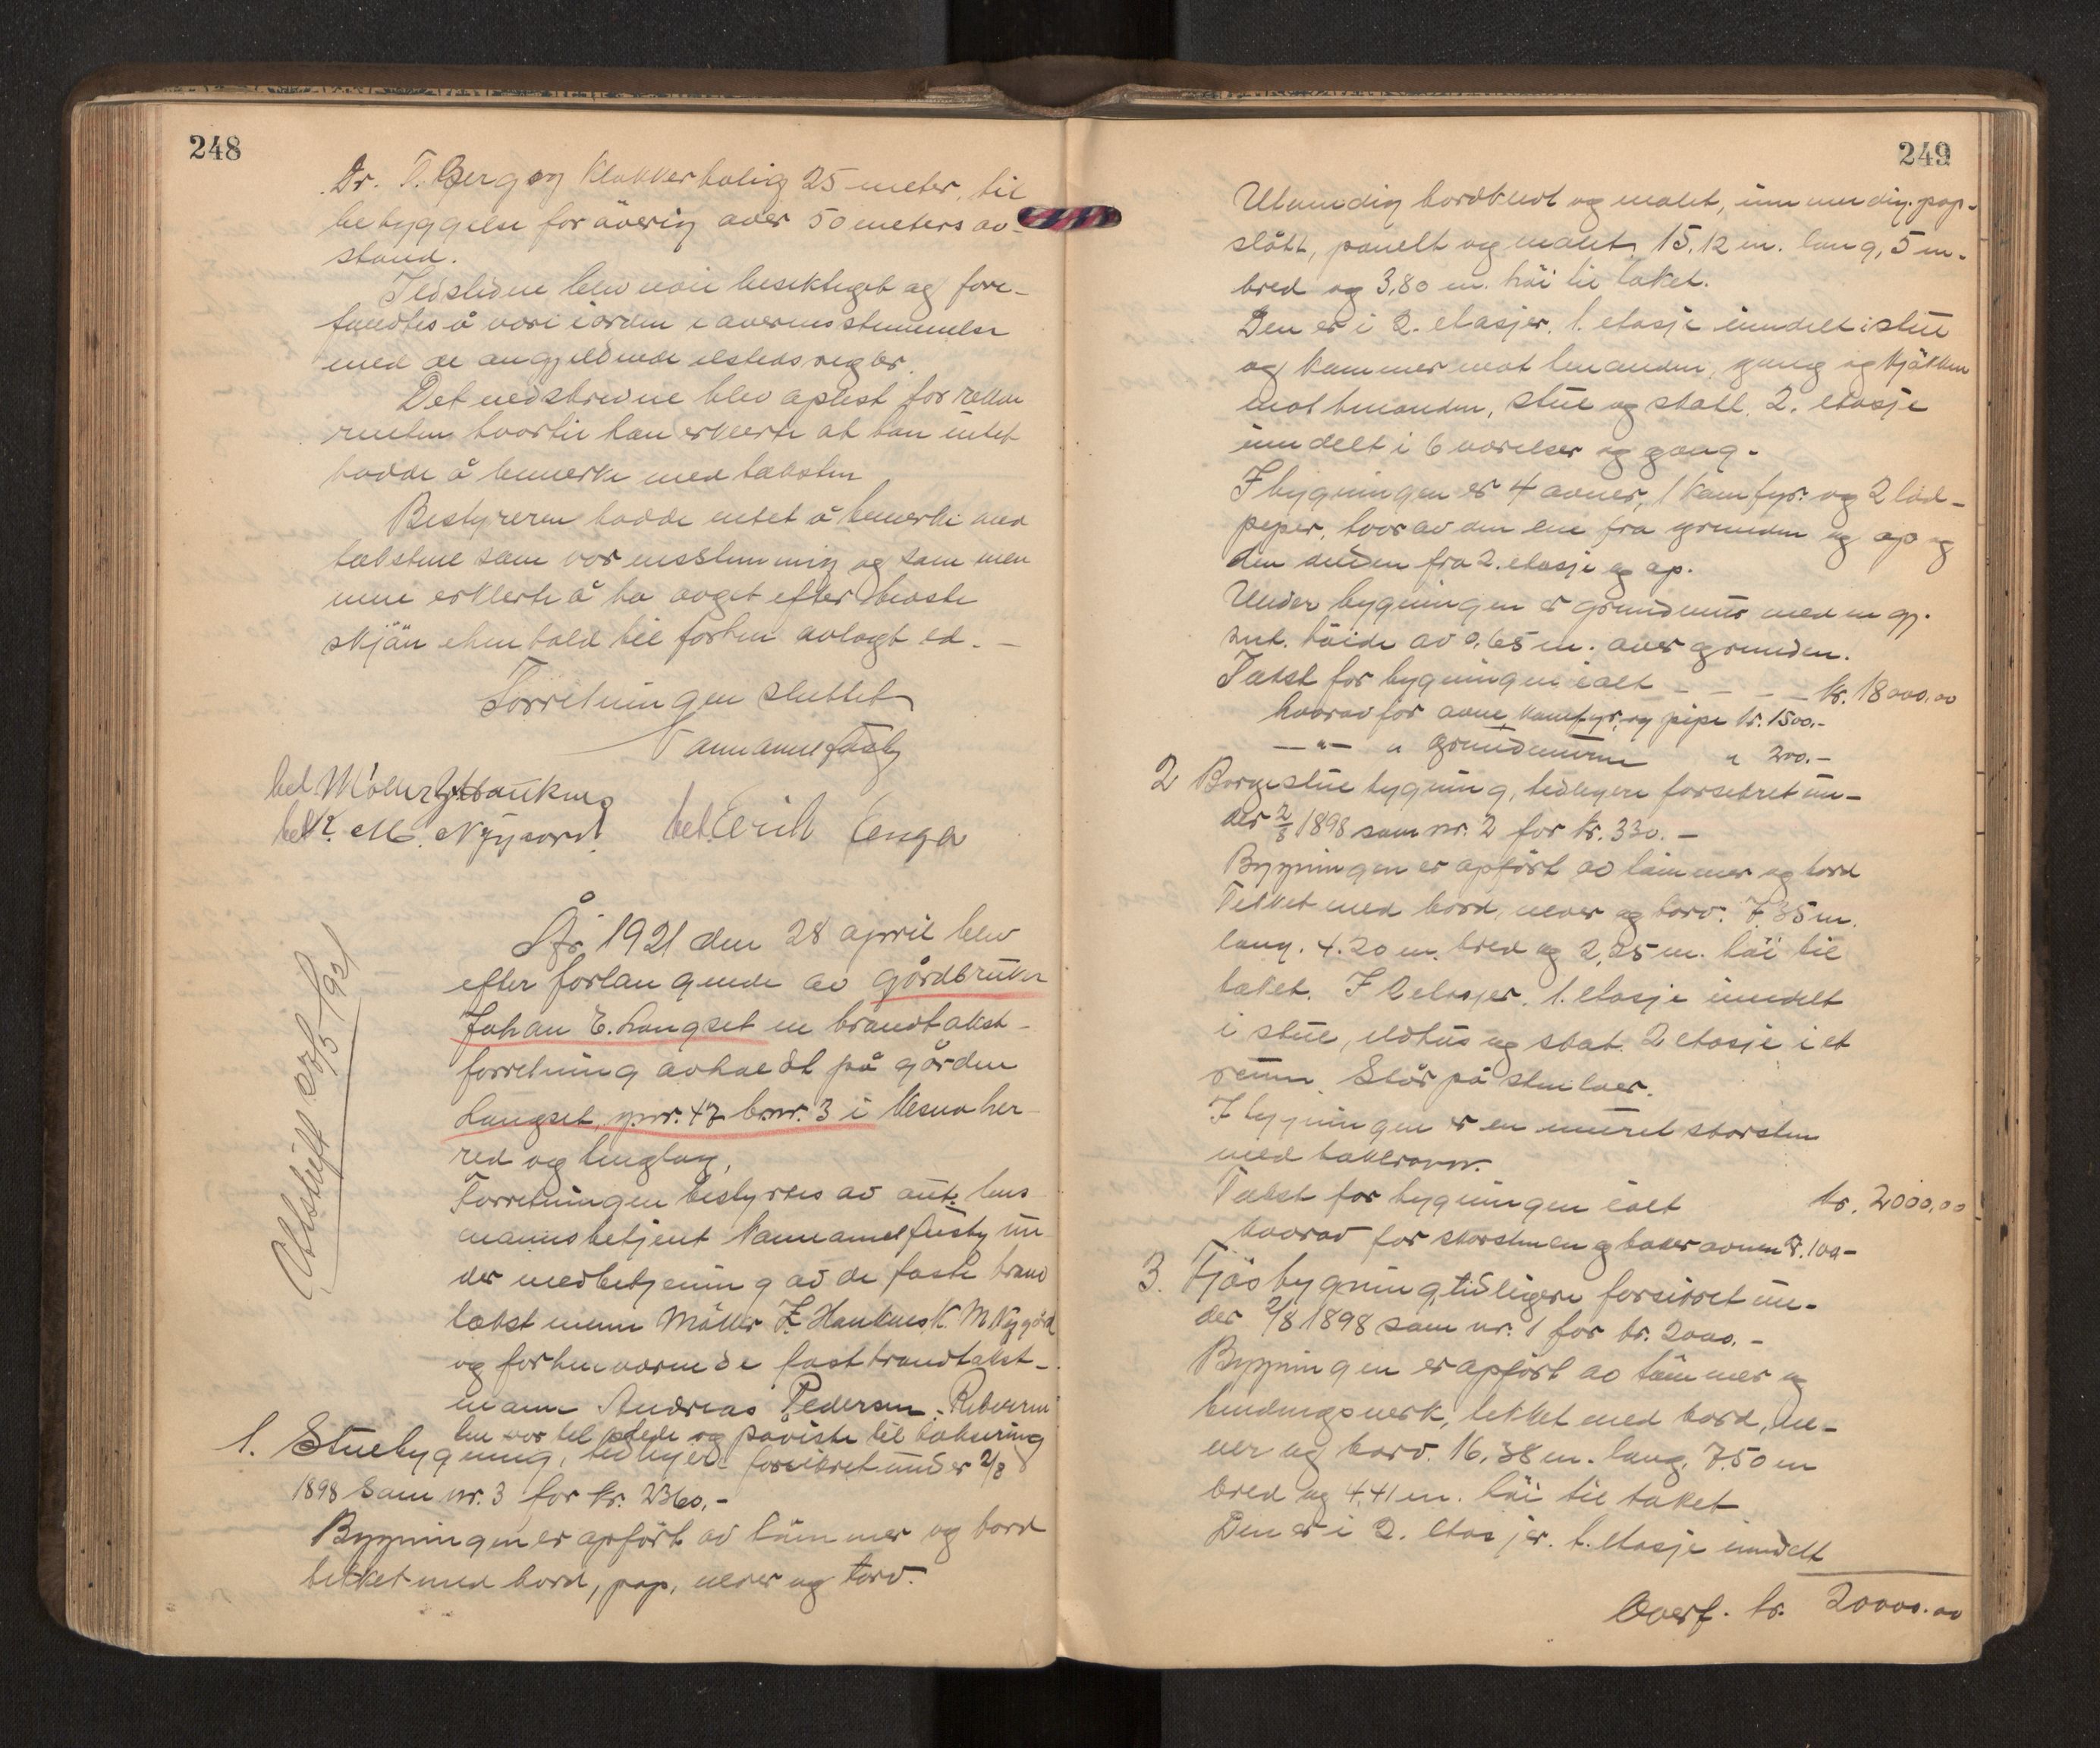 248
Dr. T. Berg og Klokkerbolig 25 meter, til
bebyggelse for överig over 50 meters av-
stand.
Ildstedene blev nöie besiktiget og fore-
fandtes å være i orden i overensstemmelse
med de angjeldende ilstedsregler.
Det nedskrevne blev oplest for rekvi
renten hvortil han erklerte at han intet
hadde å bemerke med taksten
Bestyreren hadde intet å bemerke med
takstene som var enstemmig og som men
nene erklerte å ha avget efter beaste
skjön i henhold til forhen avlagt ed. -
Forretningen sluttet
bet Möller Z. Hauknes
bet K. M. Nygaard. bet. Erich Enga
Avskrift 27/5 1921
År 1921 den 28 april blev
efter forlangende av gårdbruker
Johan E. Langset en brandtakst-
forretning avholdt på gården
Langset, gnr. 47 bnr. 3 i Nesna her-
red og tinglag,
Forretningen bestyrtes av aut. lens
mannsbetjent un-
der medbetjening av de faste brand
takstmenn Möller Z. Hauknes, K. M Nygård
og forhenværende fast brandtakst-
mann Andreas Pedersen. Rekviren
ten var til stede og påviste til taksering
1. Stuebygning, tidligere forsikret under 2/8
1898 som nr. 3 for kr. 2360.-
Bygningen er opfört av tömmer og bord
tekket med bord, pap, never og torv.
249
Utvendig bordkledt og malt, innvendig pap-
slått, panelt og malt, 15,12 m. lang, 5 m.
bred og 3,80 m. höi til taket.
Den er i 2. etasjer. 1. etasje inndelt i stue
og kammer mot hinanden, gang og kjökken
mot hinanden, stue og stall. 2. etasje
inndelt i 6 værelser og gang.
I bygningen er 4 ovner, 1 komfyr og 2 löd-
piper, hvorav den ene fra grunden og op og
den anden fra 2. etasje og op.
Under bygningen er grundmur med en gj.
snt. höide av 0,65 m. over grunden.
Takst for bygningen ialt - - - - kr. 18000,00
hvorav for ovne, komfyr, og pipe kr. 1500.-
-"- " grundmuren " 200.-
2 Borgestuebygning, tidligere forsikret un-
der 2/8 1898 som nr. 2 for kr. 330.-
Bygningen er opfört av tömmer og bord
Tekket med bord, never og torv. 7,35 m.
lang. 4.20 m. bred og 2,25 m. höi til
taket. I 2 etasjer. 1. etasje inndelt
i stue, ildhus og skot. 2 etasje i et
rum. Står på stenlaer.
I bygningen er en muret skorsten
med bakerovn.
Takst for bygningen ialt kr. 2000,00
hvorav for skorstenen og bakerovnen kr. 100-
3. Fjösbygning, tidligere forsikret un-
der 2/8 1898 som nr. 1 for kr. 2000.-
Bygningen er opfört av tömmer og
bindingsverk, tekket med bord, ne-
ver og torv. 16,38 m. lang, 7.50 m
bred og 4,41 m. höi til taket
Den er i 2. etasjer. 1. etasje inndelt
Overf. kr. 20000.00